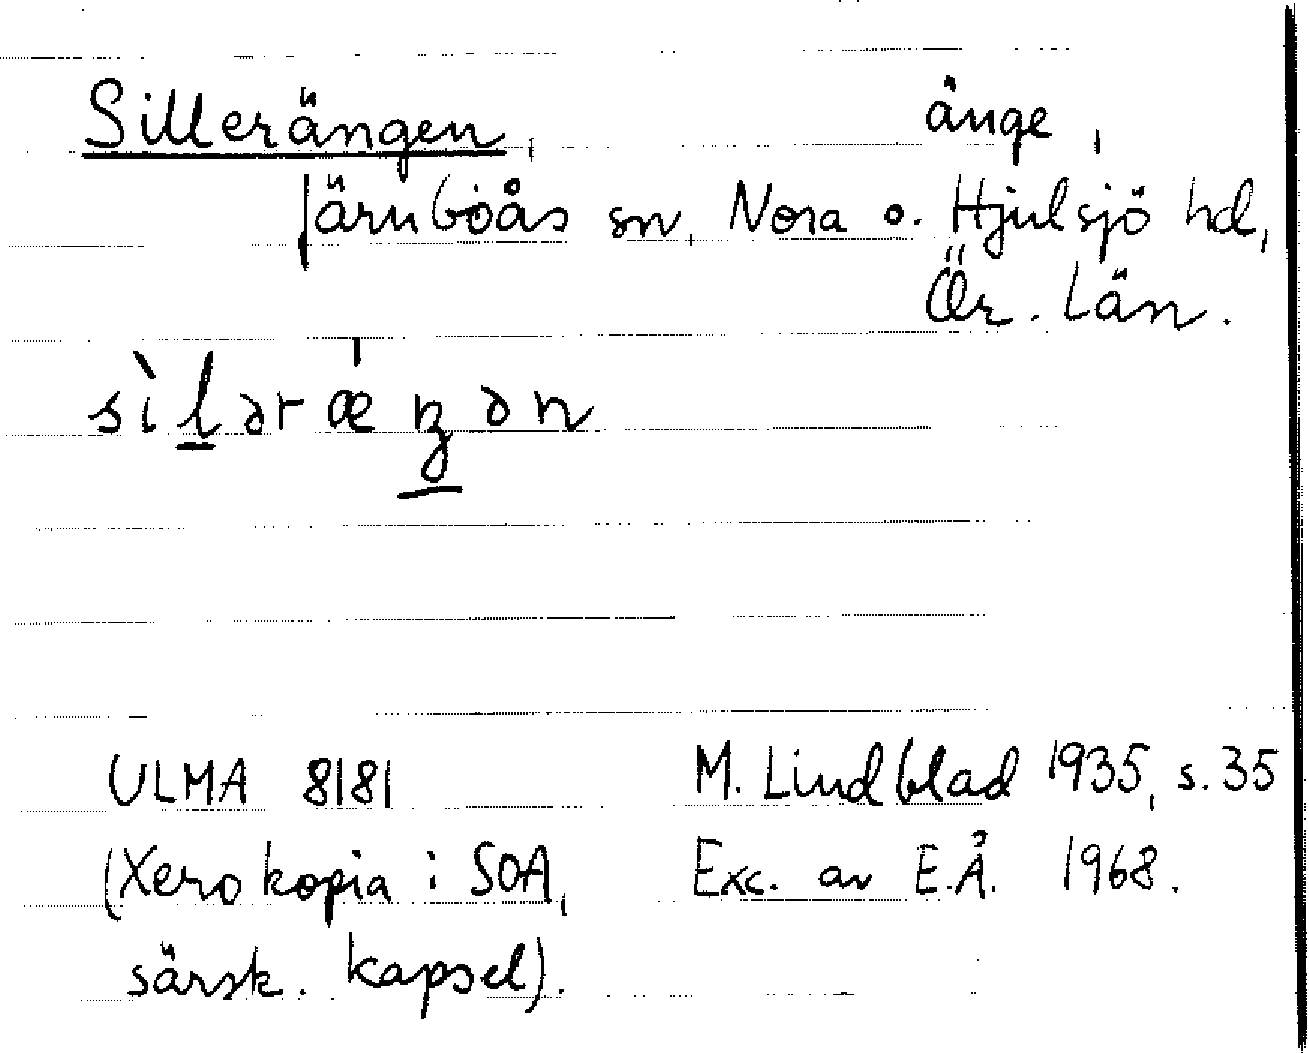 Sillerängen, änge,
Järnboås sn, Nora o. Hjulsjö hd,
Ör. län.
sìlərǽŋən
ULMA 8181 M. Lindblad 1935, s. 35
(Xerokopia i SOA, Exc. av E.Å. 1968.
särsk. kapsel).